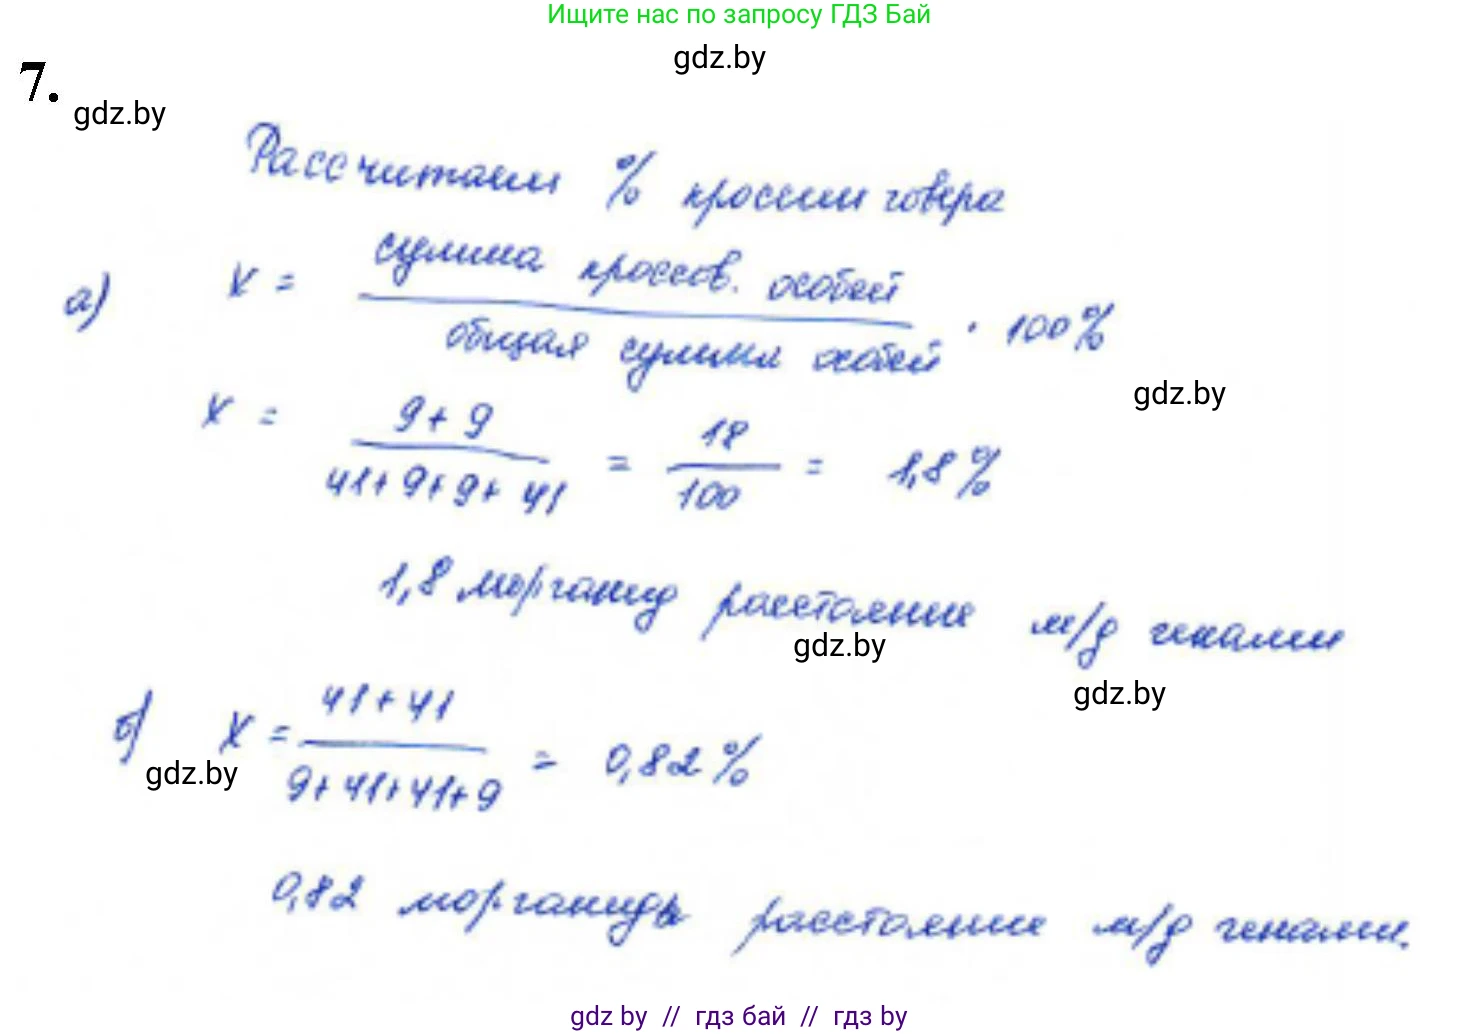 Ищите нас по запросу ГДЗ Бай
gdz.by
7.
gdz.by
Рассчитаем % кроссинговера
а) x = сумма кроссов. особей / общая сумма особей · 100%
gdz.by
x = 9+9 / 41+9+9+41 = 18 / 100 = 1,8%
1,8 морганид расстояние м/д генами
gdz.by
gdz.by
б) x = 41+41 / 9+41+41+9 = 0,82%
gdz.by
0,82 морганиды расстояние м/д генами.
gdz by // гдз бай // гдз by